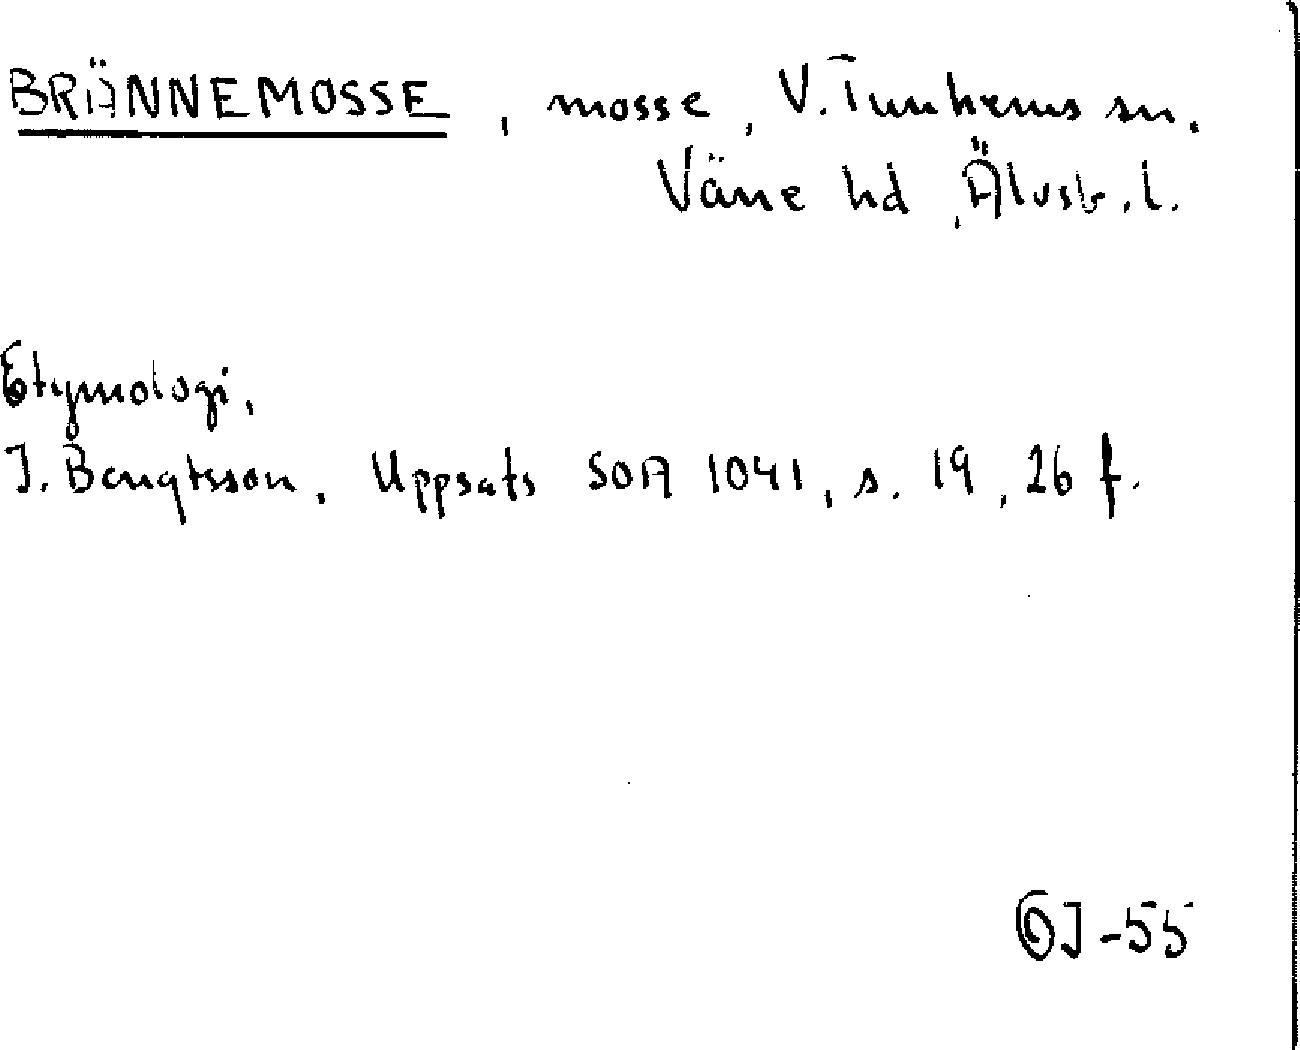 BRÄNNEMOSSE, mosse, V. Tunhems sn.
Väne hd, Älvsb. l.
Etymologi.
I. Bengtsson, Uppsats SOA 1041, s. 19, 26 f.
GJ-55